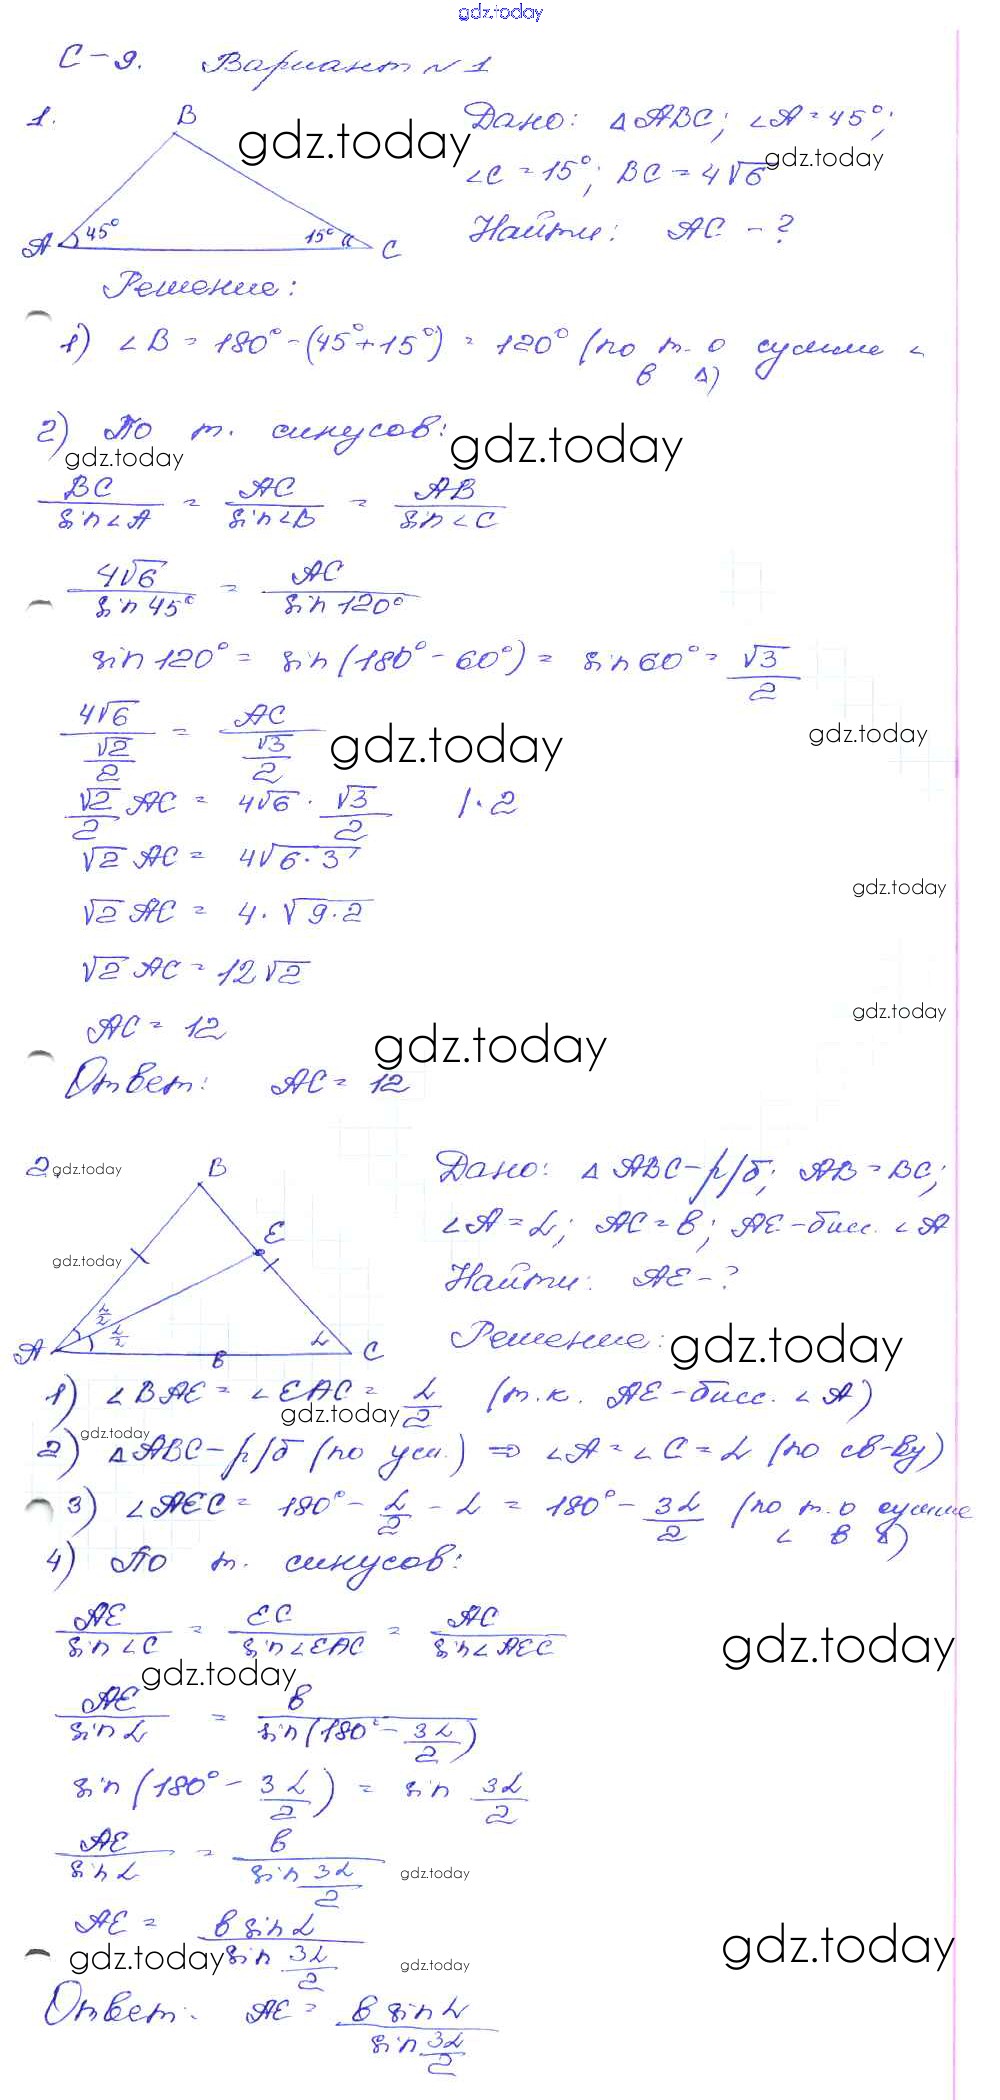 gdz.today
С-9. Вариант №1
1.
B
A 45° 15° C
Дано: △ABC; ∠A=45°;
∠C=15°; BC=4√6
Найти: AC-?
gdz.today
gdz.today
Решение:
1) ∠B=180°-(45°+15°)=120° (по т. о сумме ∠
в △)
2) По т. синусов:
gdz.today
gdz.today
BC/sin∠A = AC/sin∠B = AB/sin∠C
4√6/sin45° = AC/sin120°
sin120°= sin(180°-60°)= sin60°= √3/2
4√6/(√2/2) = AC/(√3/2)
gdz.today
gdz.today
√2/2 AC = 4√6 · √3/2 |·2
√2 AC = 4√6·3
gdz.today
√2 AC = 4·√9·2
√2 AC = 12√2
gdz.today
AC = 12
gdz.today
Ответ: AC = 12
2. gdz.today
B
E
gdz.today
α/2
α/2
A в α C
Дано: △ABC-р/б; AB=BC;
∠A=α; AC=в; AE-бисс. ∠A
Найти: AE-?
Решение:
gdz.today
1) ∠BAE=∠EAC= α/2 (т.к. AE-бисс. ∠A)
gdz.today
gdz.today
2) △ABC-р/б (по усл.) ⇒ ∠A=∠C=α (по св-ву)
3) ∠AEC= 180°- α/2 - α = 180°- 3α/2 (по т. о сумме
∠ в △)
4) По т. синусов:
AE/sin∠C = EC/sin∠EAC = AC/sin∠AEC
gdz.today
gdz.today
AE/sinα = в/sin(180°- 3α/2)
sin(180°- 3α/2) = sin 3α/2
AE/sinα = в/sin 3α/2
gdz.today
AE = в sinα/sin 3α/2
gdz.today
gdz.today
gdz.today
Ответ: AE= в sinα/sin 3α/2